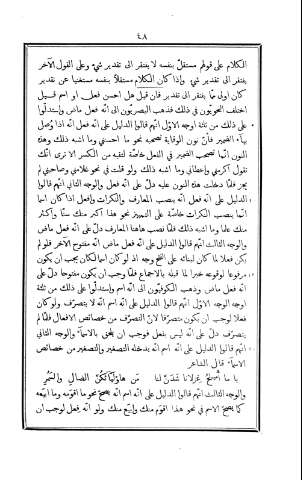 ٤٨
الكلام على قولهم مستقلّ بنفسه لا يفتقر الى تقدير شىء وعلى القول الآخر
يفتقر الى تقدير شىء واذا كان الكلام مستقلاً بنفسه مستغنيا عن تقدير
كان اولى ممّا يفتقر الى تقدير فان قيل هل احسن فعل او اسم قيل
اختلف النحويّون فى ذلك فذهب البصريّون الى انّه فعل ماض واستدلّوا
على ذلك من ثلثة اوجه الاوّل انّهم قالوا الدليل على انّه فعل انّه اذا وُصل
بياء الضمير فانّ نون الوقاية تصحبه نحو ما احسننى وما اشبه ذلك وهذه
النون انّما تصحب الضمير فى الفعل خاصّة لتقيه من الكسر الا ترى انّك
تقول اكرمنى واعطانى وما اشبه ذلك ولو قلت فى نحو غلامى وصاحبى لم
يجز فلمّا دخلت هذه النون عليه دلّ على انّه فعل والوجه الثانى انّهم قالوا
الدليل على انّه فعل انّه ينصب المعارف والنكرات وافعل اذا كان اسما
انّما ينصب النكرات خاصّة على التمييز نحو هذا اكبر منك سنّا واكثر
منك علما وما اشبه ذلك فلمّا نصب هاهنا المعارف دلّ على انّه فعل ماض
والوجه الثالث انّهم قالوا الدليل على انّه فعل ماض انّه مفتوح الآخر فلو لم
يكن فعلا لما كان لبنائه على الفتح وجه اذ لو كان اسما لكان يجب ان يكون
مرفوعا لوقوعه خبرا لما قبله بالاجماع فلمّا وجب ان يكون مفتوحا دلّ على
انّه فعل ماض وذهب الكوفيّون الى انّه اسم واستدلّوا على ذلك من ثلثة
اوجه الوجه الاوّل انّهم قالوا الدليل على انّه اسم انّه لا يتصرّف ولو كان
فعلا لوجب ان يكون متصرّفا لانّ التصرّف من خصائص الافعال فلمّا لم
يتصرّف دلّ على انّه ليس بفعل فوجب ان يلحق بالاسماء والوجه الثانى
انّهم قالوا الدليل على انّه اسم انّه يدخله التصغير والتصغير من خصائص
الاسماء قال الشاعر
يا ما أُمَيْلِحَ غزلانا شَدَنَّ لنا من هاؤليّائكنّ الضالِ والسَّمُرِ
والوجه الثالث انّهم قالوا الدليل على انّه اسم انّه يصحّ نحو ما اقومه وما ابيعه
كما يصحّ الاسم فى نحو هذا اقوم منك وابيع منك ولو انّه فعل لوجب ان